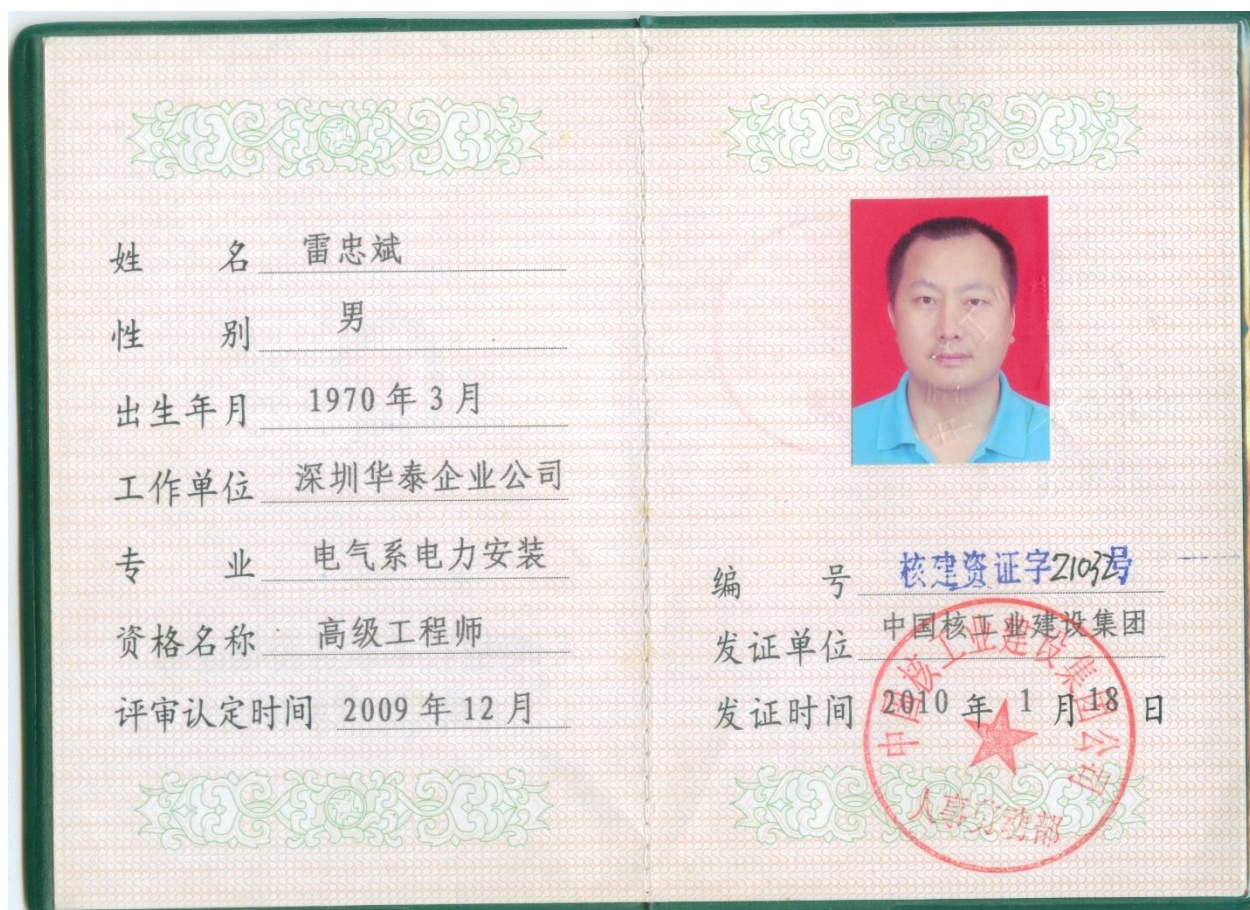 姓 名 雷忠斌
性 别 男
出生年月 1970年3月
工作单位 深圳华泰企业公司
专 业 电气系电力安装
资格名称 高级工程师
评审认定时间 2009年12月
编 号 核建资证字2103号
发证单位 中国核工业建设集团
发证时间 2010年1月18日
中国核工业建设集团公司
人事劳动部